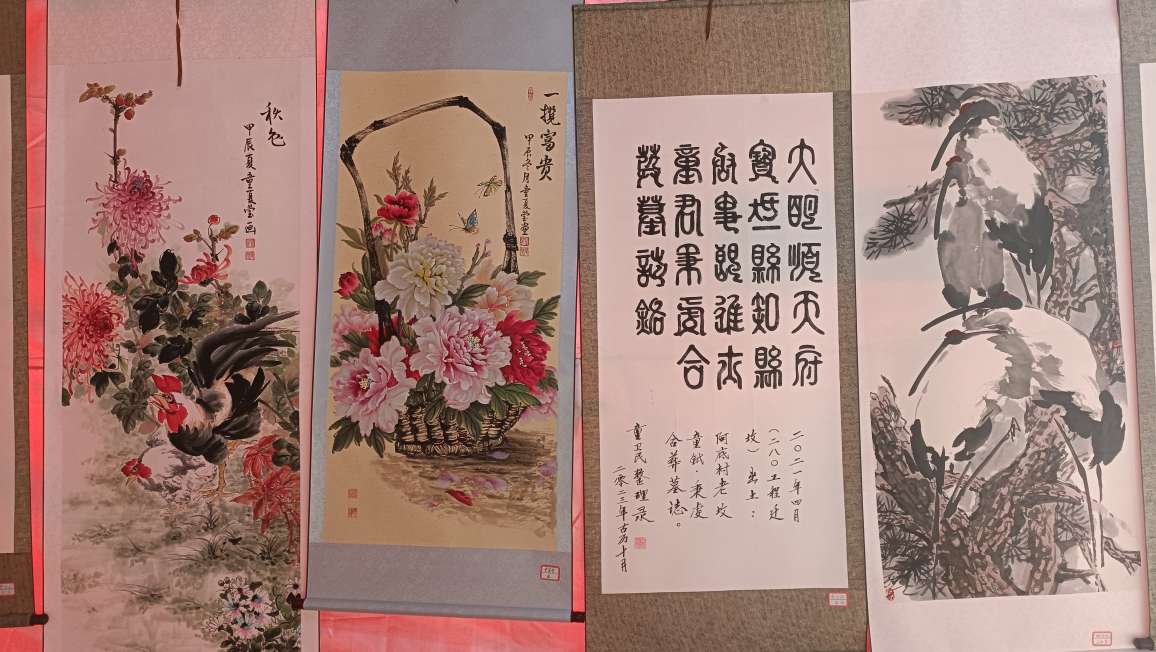 秋色
甲辰夏童夏莹画
一揽富贵
甲辰冬月童夏莹画
大明順天府
寶坻縣知縣
事進士
童君秉虔合
葬墓誌銘
二〇二一年四月
(二八〇工程迁
坟)出土:
阿底村老坟
童钺·秉虔
合葬墓志。
童卫民整理录
二零二三年古历十月